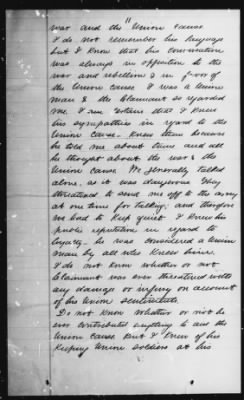 11
war and the Union cause
I do not remember his language
but I know that his conversation
was always in opposition to the
war and rebellion & in favor of
the Union cause I was a Union
man & the Claimant so regarded
me. I am certain that I knew
his sympathies in regard to the
Union Cause. Knew them because
he told me about them and all
he thought about the war & the
Union cause We generally talked
alone, as it was dangerous They
threatened to send me off to the army
at one time for talking, and therefore
we had to keep quiet I knew his
public reputation in regard to
loyalty. he was considered a Union
man by all who knew him.
I do not know whether or not
Claimant was ever threatened with
any damage or injury on account
of his Union sentiments.
Do not know whether or not he
ever contributed anything to aid the
Union cause but I knew of his
keeping Union soldiers at his